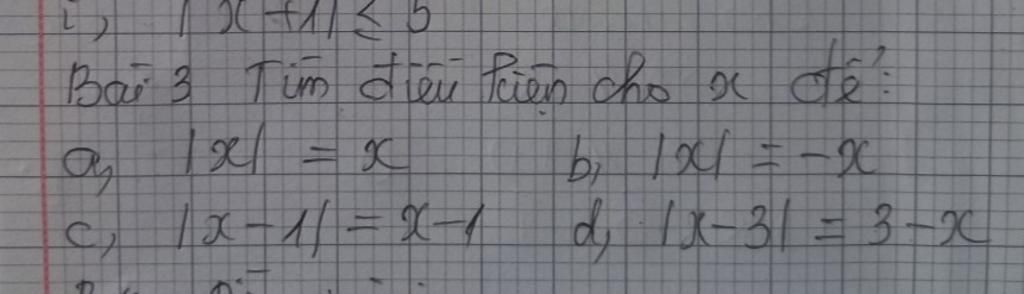 i, |x+1| ≤ 5
Bài 3 Tìm điều kiện cho x để:
a, |x| = x b, |x| = -x
c, |x-1| = x-1 d, |x-3| = 3-x